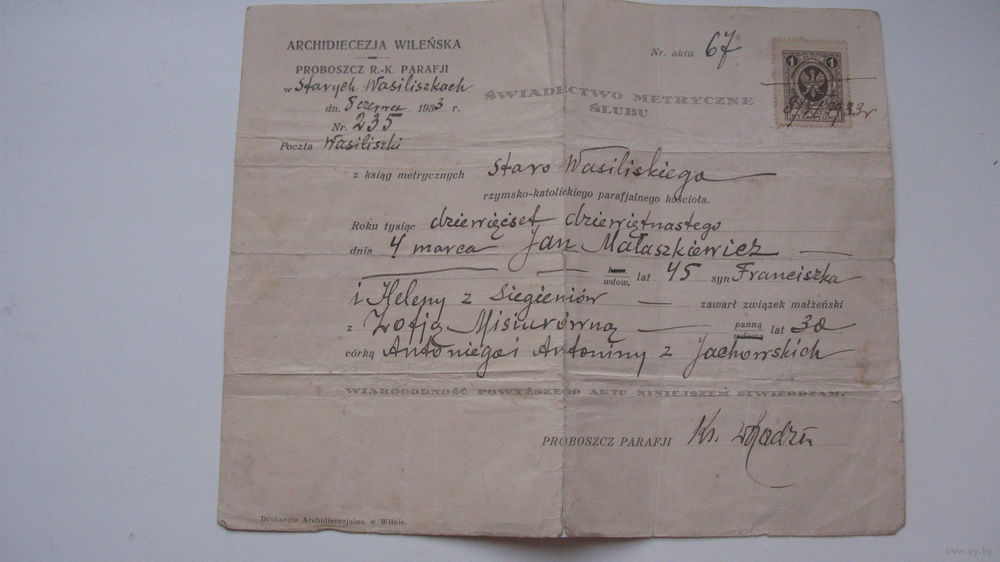 ARCHIDIECEZJA WILEŃSKA
PROBOSZCZ R.-K. PARAFJI
w Starych Wasiliszkach
dn. 8 czerwca 1933 r.
Nr. 235
Poczta Wasiliszki
Nr. aktu 67
1 1
1933 r
ŚWIADECTWO METRYCZNE
ŚLUBU
z ksiąg metrycznych Staro Wasiliskiego
rzymsko-katolickiego parafjalnego kościoła.
Roku tysiąc dziewięćset dziewiętnastego
dnia 4 marca Jan Małaszkiewicz
kaw. wdow. lat 45 syn Franciszka
i Heleny z Siegieniów zawarł związek małżeński
z Zofją Misiurówną panną wdową lat 30
córką Antoniego i Antoniny z Jachowskich
WIAROGODNOŚĆ POWYŻSZEGO AKTU NINIEJSZEM STWIERDZAM.
PROBOSZCZ PARAFJI Ks.
Drukarnia Archidiecezjalna w Wilnie.
www.ay.by